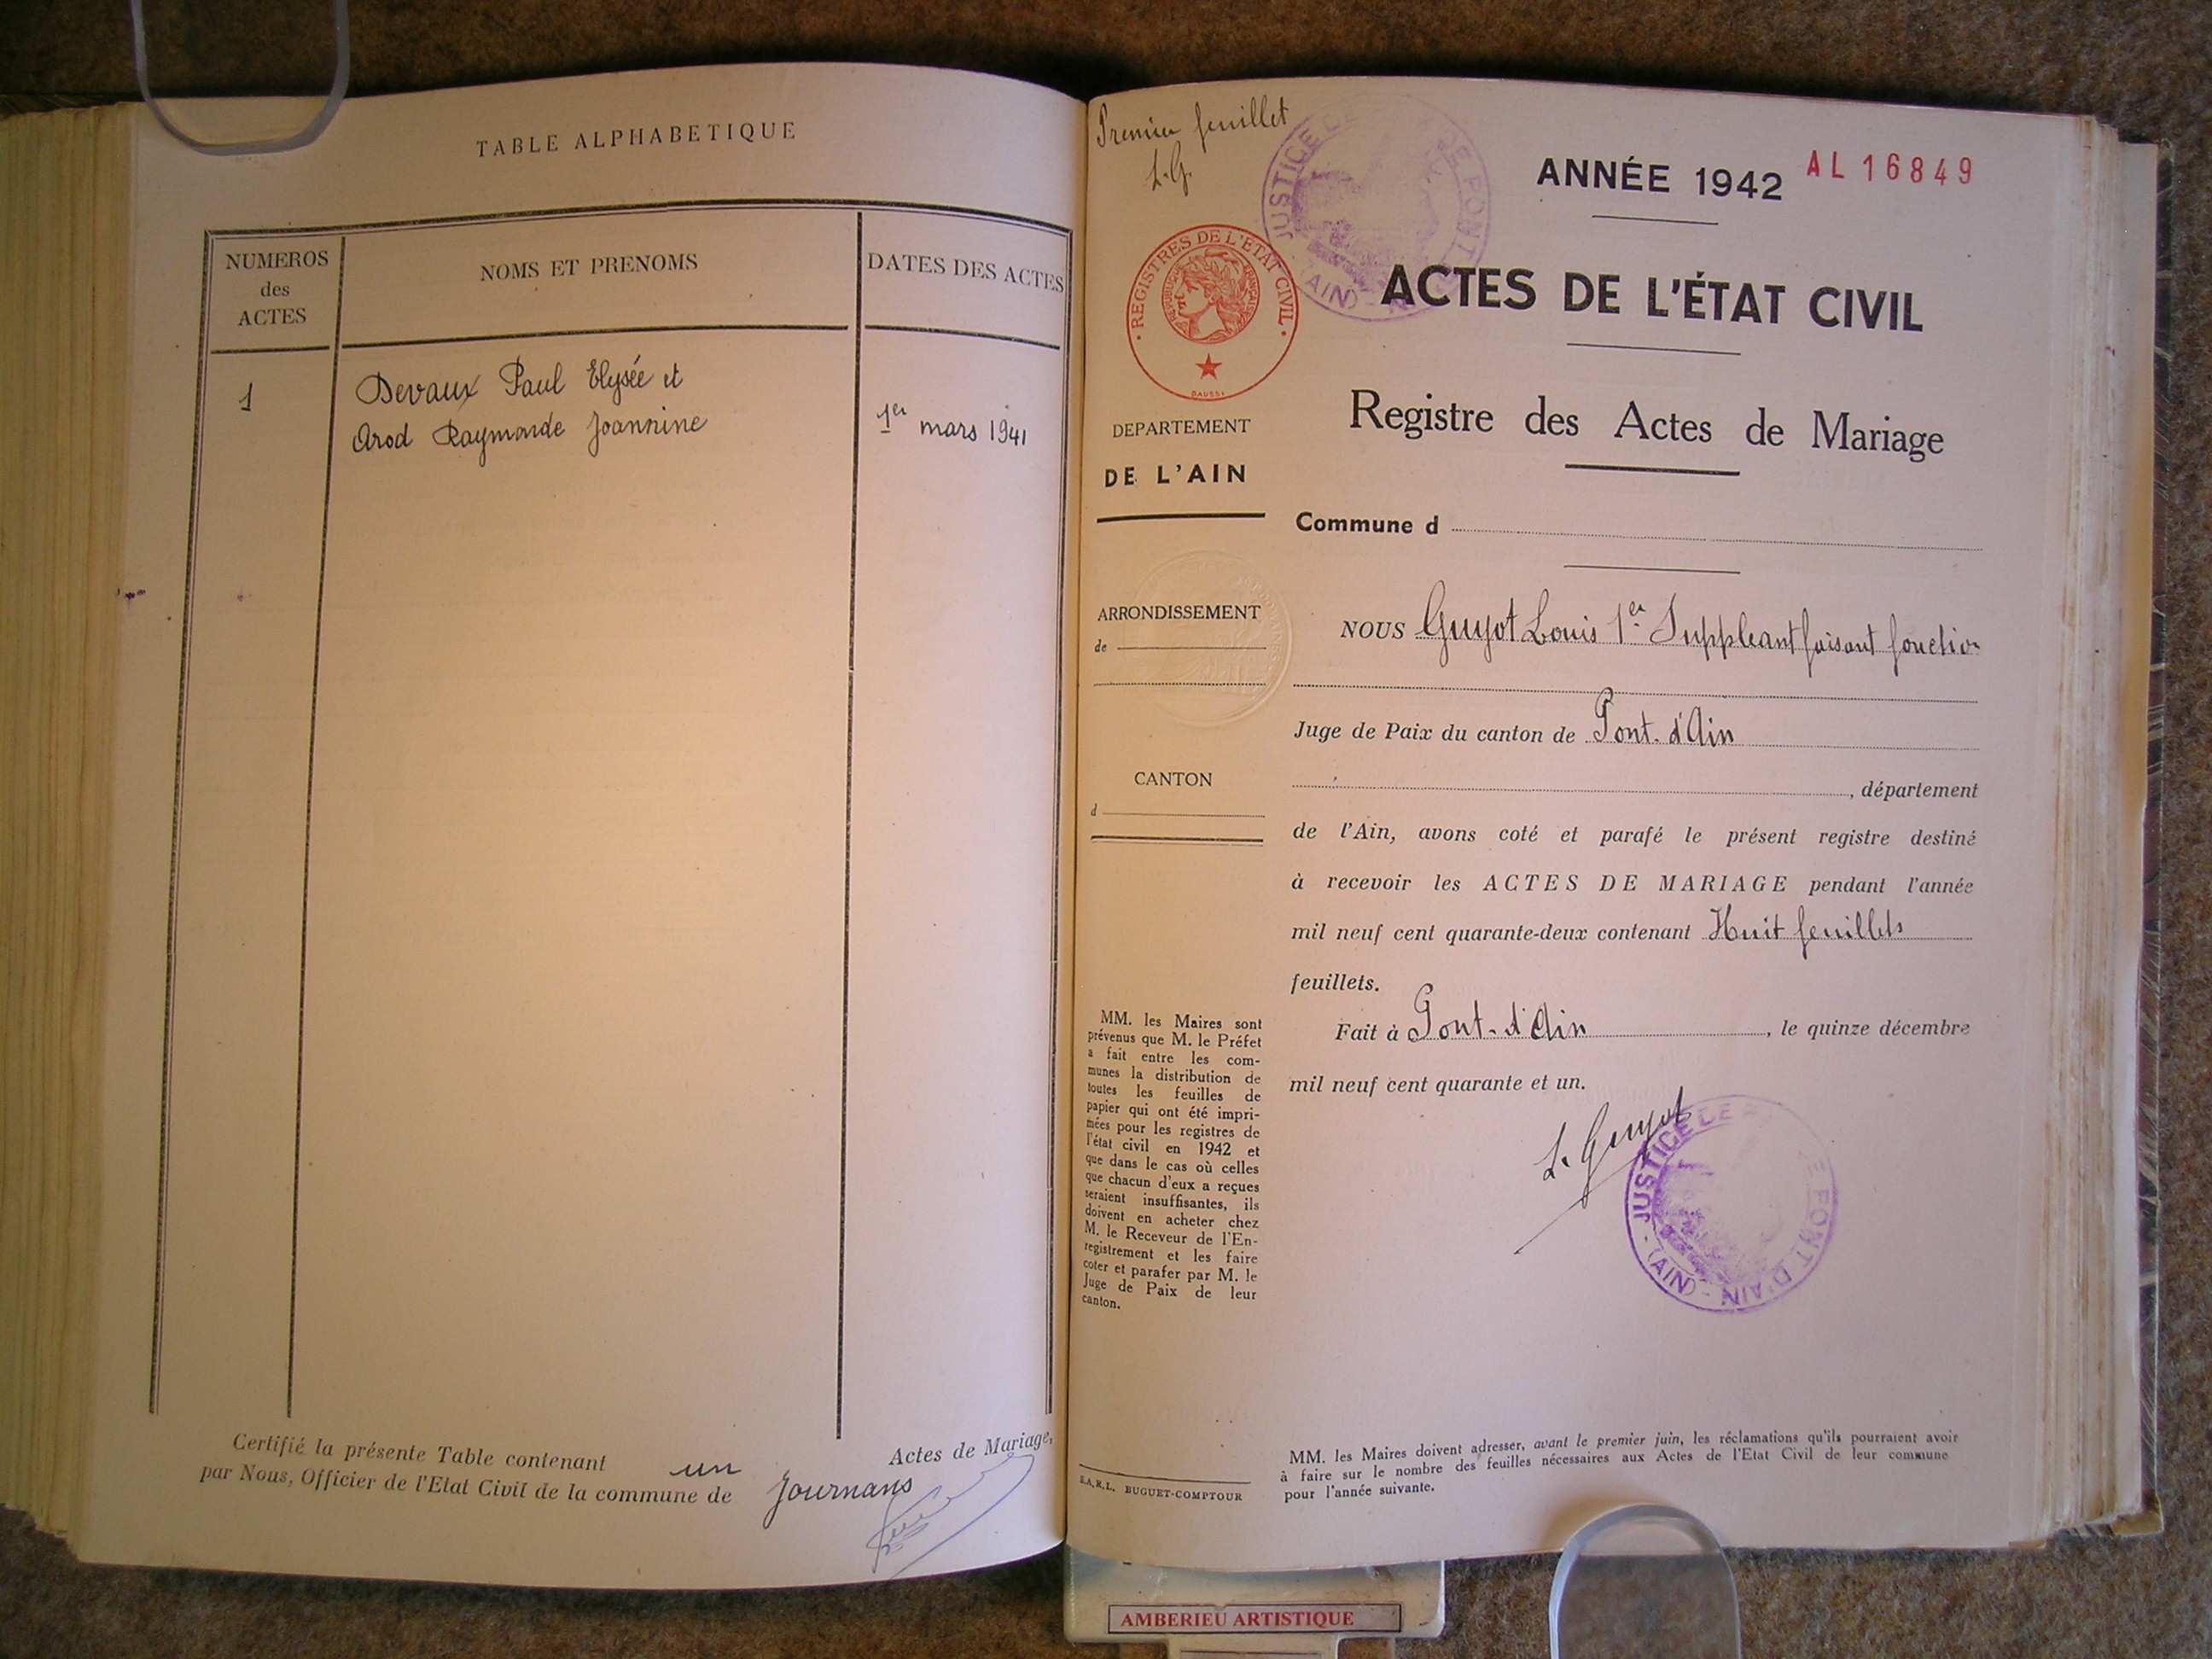 TABLE ALPHABETIQUE
NUMEROS
des
ACTES
NOMS ET PRENOMS
DATES DES ACTES
1
Devaux Paul Elysée et
Arod Raymonde Joannine
1er mars 1941
Certifié la présente Table contenant un Actes de Mariage,
par Nous, Officier de l'Etat Civil de la commune de Journans
Premier feuillet
L.G.
JUSTICE DE DE PONT (AIN)
ANNÉE 1942
AL 16849
REGISTRES DE L'ETAT CIVIL
ACTES DE L'ÉTAT CIVIL
Registre des Actes de Mariage
DEPARTEMENT
DE L'AIN
Commune d
ARRONDISSEMENT
de
CANTON
d
NOUS Guyot Louis 1er Suppleant faisant fonction
Juge de Paix du canton de Pont-d'Ain
, département
de l'Ain, avons coté et parafé le présent registre destiné
à recevoir les ACTES DE MARIAGE pendant l'année
mil neuf cent quarante-deux contenant Huit feuillets
feuillets.
Fait à Pont-d'Ain, le quinze décembre
mil neuf cent quarante et un.
L. Guyot
JUSTICE DE DE PONT D'AIN - (AIN) -
MM. les Maires sont
prévenus que M. le Préfet
a fait entre les com-
munes la distribution de
toutes les feuilles de
papier qui ont été impri-
mées pour les registres de
l'état civil en 1942 et
que dans le cas où celles
que chacun d'eux a reçues
seraient insuffisantes, ils
doivent en acheter chez
M. le Receveur de l'En-
registrement et les faire
coter et parafer par M. le
Juge de Paix de leur
canton.
S.A.R.L. BUGUET-COMPTOUR
MM. les Maires doivent adresser, avant le premier juin, les réclamations qu'ils pourraient avoir
à faire sur le nombre des feuilles nécessaires aux Actes de l'Etat Civil de leur commune
pour l'année suivante.
AMBERIEU ARTISTIQUE